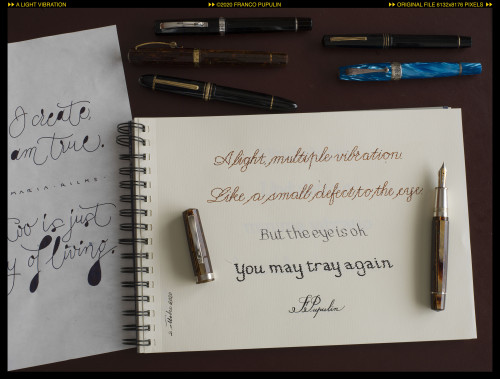 A LIGHT VIBRATION
©2020 FRANCO PUPULIN
ORIGINAL FILE 8132x8176 PIXELS
I create,
am true.
MARIA RILKE
too is just
y of living.
A light, multiple vibration.
Like a small defect to the eye
But the eye is ok
You may tray again
F. Pupulin